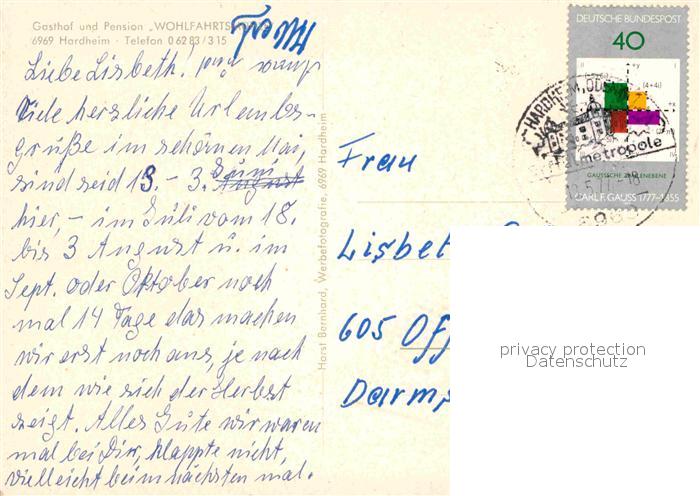 Gasthof und Pension „WOHLFAHRTSMÜHLE"
6969 Hardheim - Telefon 0 62 83 / 3 15
Liebe Lisbeth!
Viele herzliche Urlaubs-
grüße im schönen Mai,
sind seid 13. - 3. Juni August
hier, - im Juli vom 18.
bis 3 August u. im
Sept. oder Oktober noch
mal 14 Tage das machen
wir erst noch aus, je nach
dem wie sich der Herbst
zeigt. Alles Gute wir waren
mal bei Dir, klappte nicht,
vielleicht beim nächsten mal.
Horst Bernhard, Werbefotografie, 6969 Hardheim
DEUTSCHE BUNDESPOST
40
+y
(4+4i)
GAUSSSCHE ZAHLENEBENE
CARL F. GAUSS 1777-1855
HARDHEIM, ODENW
metropole
5.77-18
Frau
Lisbet
605 Off
Darm
privacy protection
Datenschutz